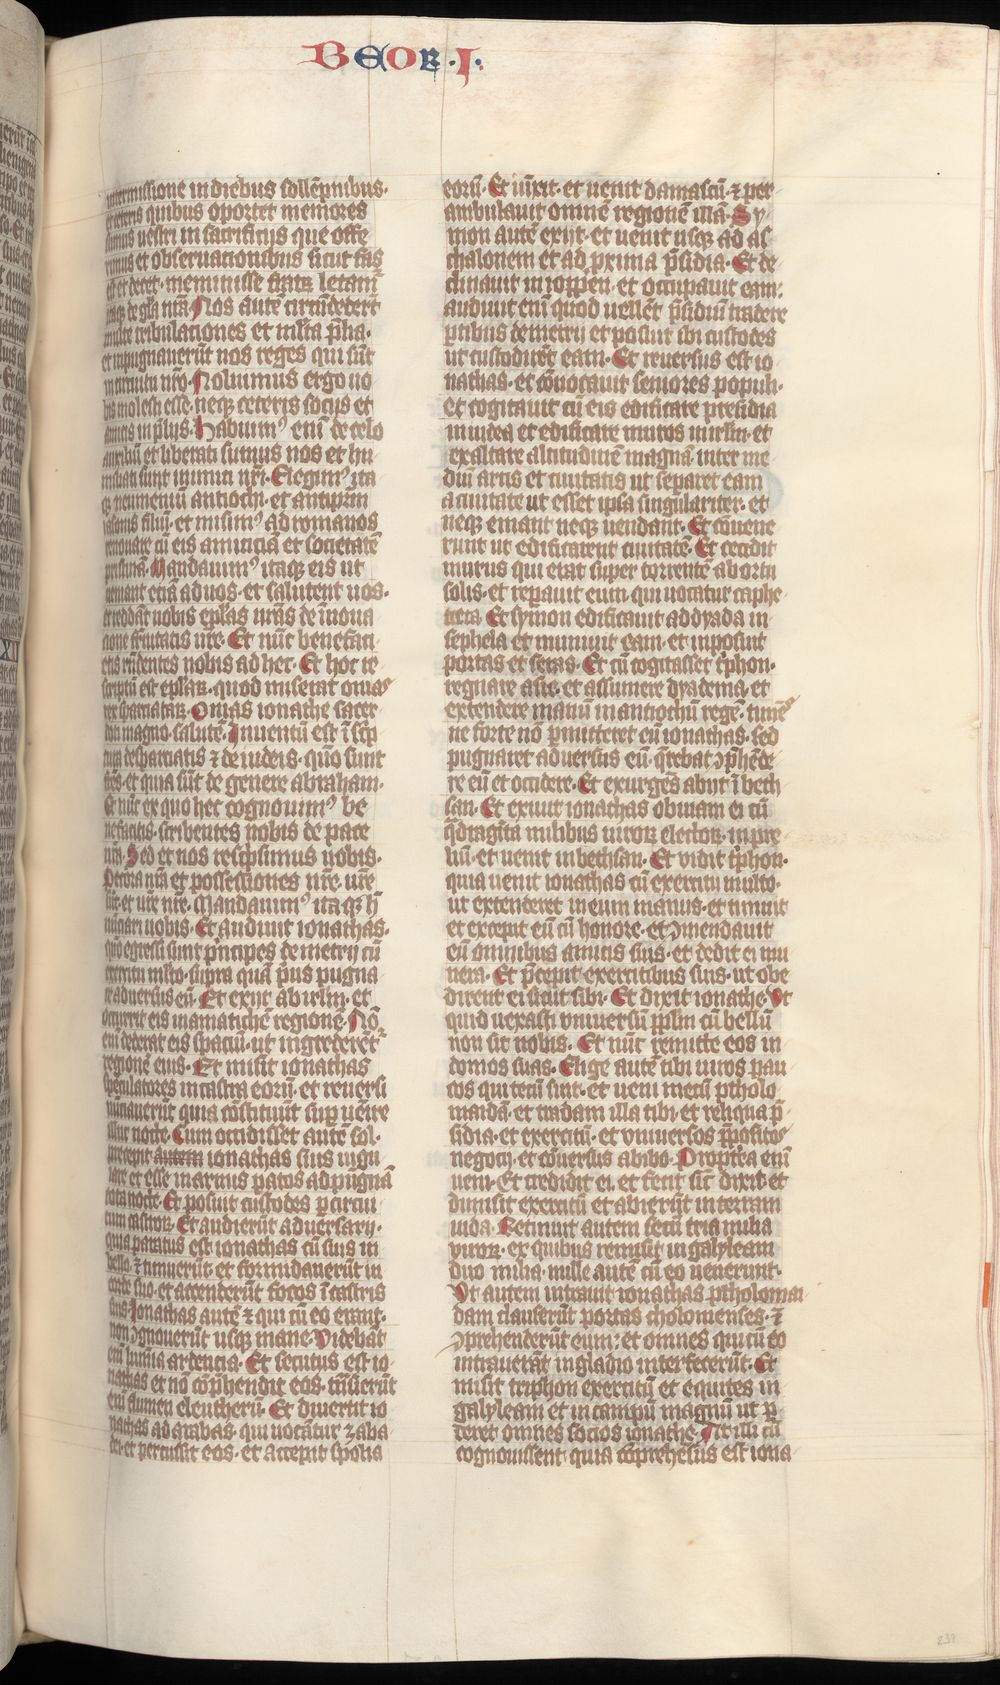 BEOR · I ·
intermissione in diebus sollẽpnibus·
et ceteris quibus oportet memores
sumus vestri in sacrificijs que offe
rimus et obseruationibus sicut fas
est et decet· meminisse fratꝝ· letam̃
itaqꝫ de gl̃a vr̃a· Nos autẽ circũdederũt
multe tribulaciones et multa p̃lia·
et inpugnauerũt nos reges qui sũt
in circuitu nr̃o· Noluimus ergo uo
bis molesti esse· neqꝫ ceteris socijs et
amicis in p̃lijs· Habuimꝰ eni᷃ de celo
auxiliũ et liberati sumus nos et hu
miliati sunt inimici nr̃i· Elegimꝰ ita
qꝫ neumeniũ antiochi· et antiprũ
iasonis filiũ· et misimꝰ ad romanos
renouare cũ eis amiciciã et societatẽ
pristinã· Mandauimꝰ itaqꝫ eis ut
ueniant etiã ad uos· et salutent uos·
et reddãt uobis ep̃las nr̃as de inoua
cione fr̃nitatis nr̃e· Et nũc benefaci
etis rñdentes nobis ad hec· Et hoc re
scriptũ est ep̃laꝝ· quod miserat onias
rex sparciataꝝ· Onias ionathe sacer
doti magno· salutẽ· Inuentũ est ĩ sc̃p
tura de sparciatis ⁊ de iudeis· quõ sunt
fr̃es· et quia sũt de genere abraham·
Et nũc ex quo hec cognouimꝰ be
nefacitis· scribentes nobis de pace
vr̃a· Sed et nos resc̃psimus uobis·
Pecora nr̃a et possessiones nr̃e· vr̃e
sũt· et vr̃e nr̃e· Mandauimꝰ itaqꝫ h̃
nũciari uobis· Et audiuit ionathas·
quõ egressi sunt p̃ncipes demetrij cũ
exercitu m̃lto· supra quã p̃us pugna
re aduersus eũ· Et exijt ab irl̃m· et
occurrit eis in amathitẽ regione· Nõ
eni᷃ dederat eis spaciũ· ut ingrederẽt᷑
regionẽ eius· Et misit ionathas
speculatores in castra eorũ· et reuersi
nũciauerũt quia cõstituũt sup̃ uenire
illis nocte· Cum occidisset autẽ sol·
precepit autem ionathas suis uigi
lare et esse in armis patos ad pugnã
tota nocte· Et posuit custodes p̃ circui
tum castroꝝ· Et audierũt aduersarij·
quia paratus est ionathas cũ suis in
bello· ⁊ timuerũt· et formidauerũt in
corde suo· et accenderũt focos ĩ castris
suis· Ionathas autẽ ⁊ qui cũ eo erant·
non ꝯgnouerũt usqꝫ mane· Videbãt
eni᷃ luminia ardencia· Et secutus est io
nathas et nõ cõp̃hendit eos· trãsierũt
eni᷃ flumen eleutherũ· Et diuertit io
nathas ad arabas· qui uocãtur zaba
dei· et percussit eos· et accepit spolia
eorũ· Et iũxit· et uenit damascũ· ⁊ per
ambulauit omnẽ regionẽ illã· Sy
mon autẽ exijt· et uenit usqꝫ ad as
chalonem et ad p̃xima p̃sidia· Et de
clinauit in ioppen· et occupauit eam·
audiuit eni᷃ quod uellẽt p̃sidiũ tradere
p̃tibus demetrij et posuit ibi custodes
ut custodirẽt eam· Et reuersus est io
nathas· et cõuocauit seniores populi·
et cogitauit cũ eis edificare presidia
in iudea et edificare muros in irl̃m· et
exaltare altitudinẽ magnã· inter me
diũ arcis et ciuitatis ut separet eam
a ciuitate ut esset ipsa singulariter· et
neqꝫ emant neqꝫ uendant· Et cõuene
runt ut edificarent ciuitatẽ· Et cecidit
murus qui erat super torrentẽ ab ortu
solis· et reparuit eum· qui uocatur caphe
teta· Et symon edificauit addyada in
sephela et muniuit eam· et inposuit
portas et seras· Et cũ cogitasset tr̃phon·
regnare asie· et assumere dyadema· et
extendere manũ in antiochũ regẽ· timẽs
ne forte nõ p̃mitteret eũ ionathas· sed
pugnaret aduersus eũ· q̃rebat ꝯp̃hẽde
re eũ et occidere· Et exurgẽs abijt ĩ beth
san· Et exiuit ionathas obuiam ei cũ
q̃dragĩta milibus uiroꝝ electoꝝ· in pre
liũ· et uenit in bethsan· Et vidit tr̃phon·
quia uenit ionathas cũ exercitu multo·
ut extenderet in eum manus· et timuit
et excepit eũ cũ honore· et ꝯmendauit
eũ omnibus amicis suis· et dedit ei mu
nera· Et p̃cepit exercitibus suis· ut obe
dirent ei sicut sibi· Et dixit ionathe· Vt
quid uexasti vniuersũ pp̃lm cũ bellũ
non sit nobis· Et nũc remitte eos in
domos suas· Elige autẽ tibi viros pau
cos qui tecũ sint· et veni mecũ ptholo
maidã· et tradam illa tibi· et reliqua p̃
sidia· et exercitũ· et vniuersos p̃positos
negocij· et cõuersus abibo· Propt̃ea eni᷃
veni· Et credidit ei· et fecit sic̃ dixit· et
dimisit exercitũ et abierũt in terram
iuda· Retinuit autem secũ tria milia
viroꝝ· ex quibus remisit in galyleam
duo milia· mille autẽ cũ eo venerunt·
Vt autem intrauit ionathas ptholomai
dam clauserũt portas tholomenses· ⁊
ꝯprehenderũt eum· et omnes qui cũ eo
intrauerãt in gladio interfecerũt· Et
misit triphon exercitũ et equites in
galyleam et in campũ magnũ ut p̃
deret omnes socios ionathe· At illi cũ
cognouissent quia cõprehẽsus est iona